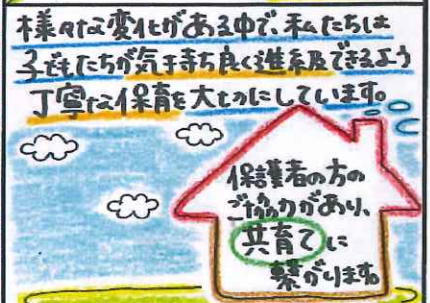 様々な変化がある中で、私たちは
子どもたちが気持ち良く進級できるよう
丁寧な保育を大切にしています。
保護者の方の
ご協力があり、
共育てに
繋がります。